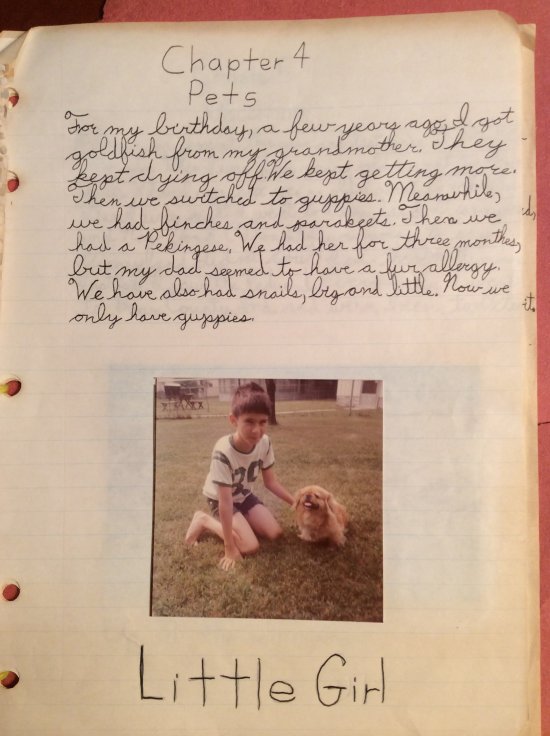 Chapter 4
Pets
For my birthday, a few years ago, I got
goldfish from my grandmother. They
kept dying off. We kept getting more.
Then we switched to guppies. Meanwhile,
we had finches and parakeets. Then we
had a Pekingese. We had her for three monthes,
but my dad seemed to have a fur allergy.
We have also had snails, big and little. Now we
only have guppies.
Little Girl